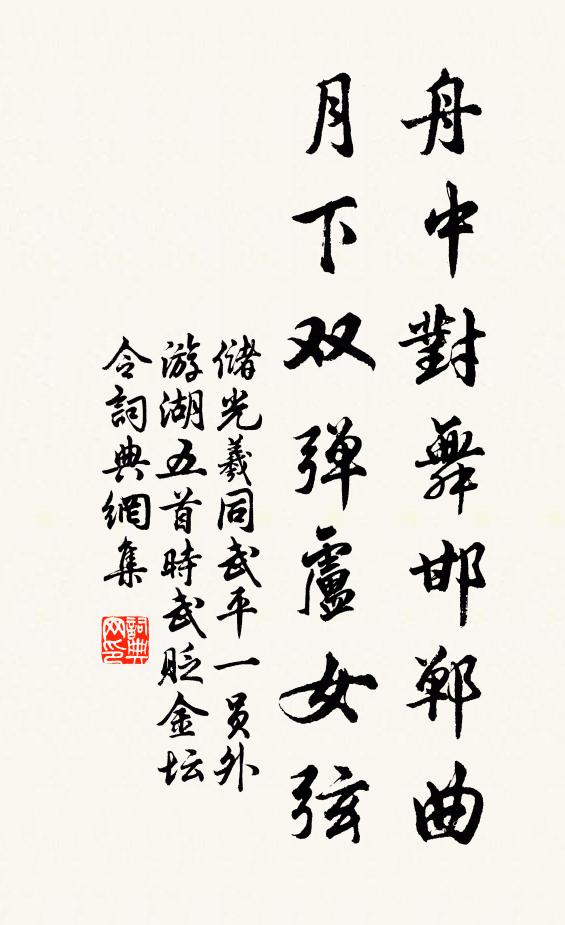 舟中對舞邯鄲曲
月下双弹盧女弦
儲光羲同武平一員外
游湖五首時武貶金坛
令詞典網集
詞典网印